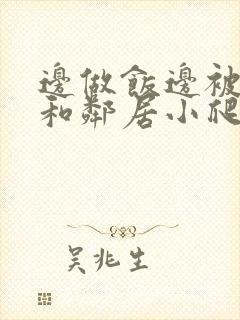 邊做飯邊被
和鄰居小爬
吳兆生